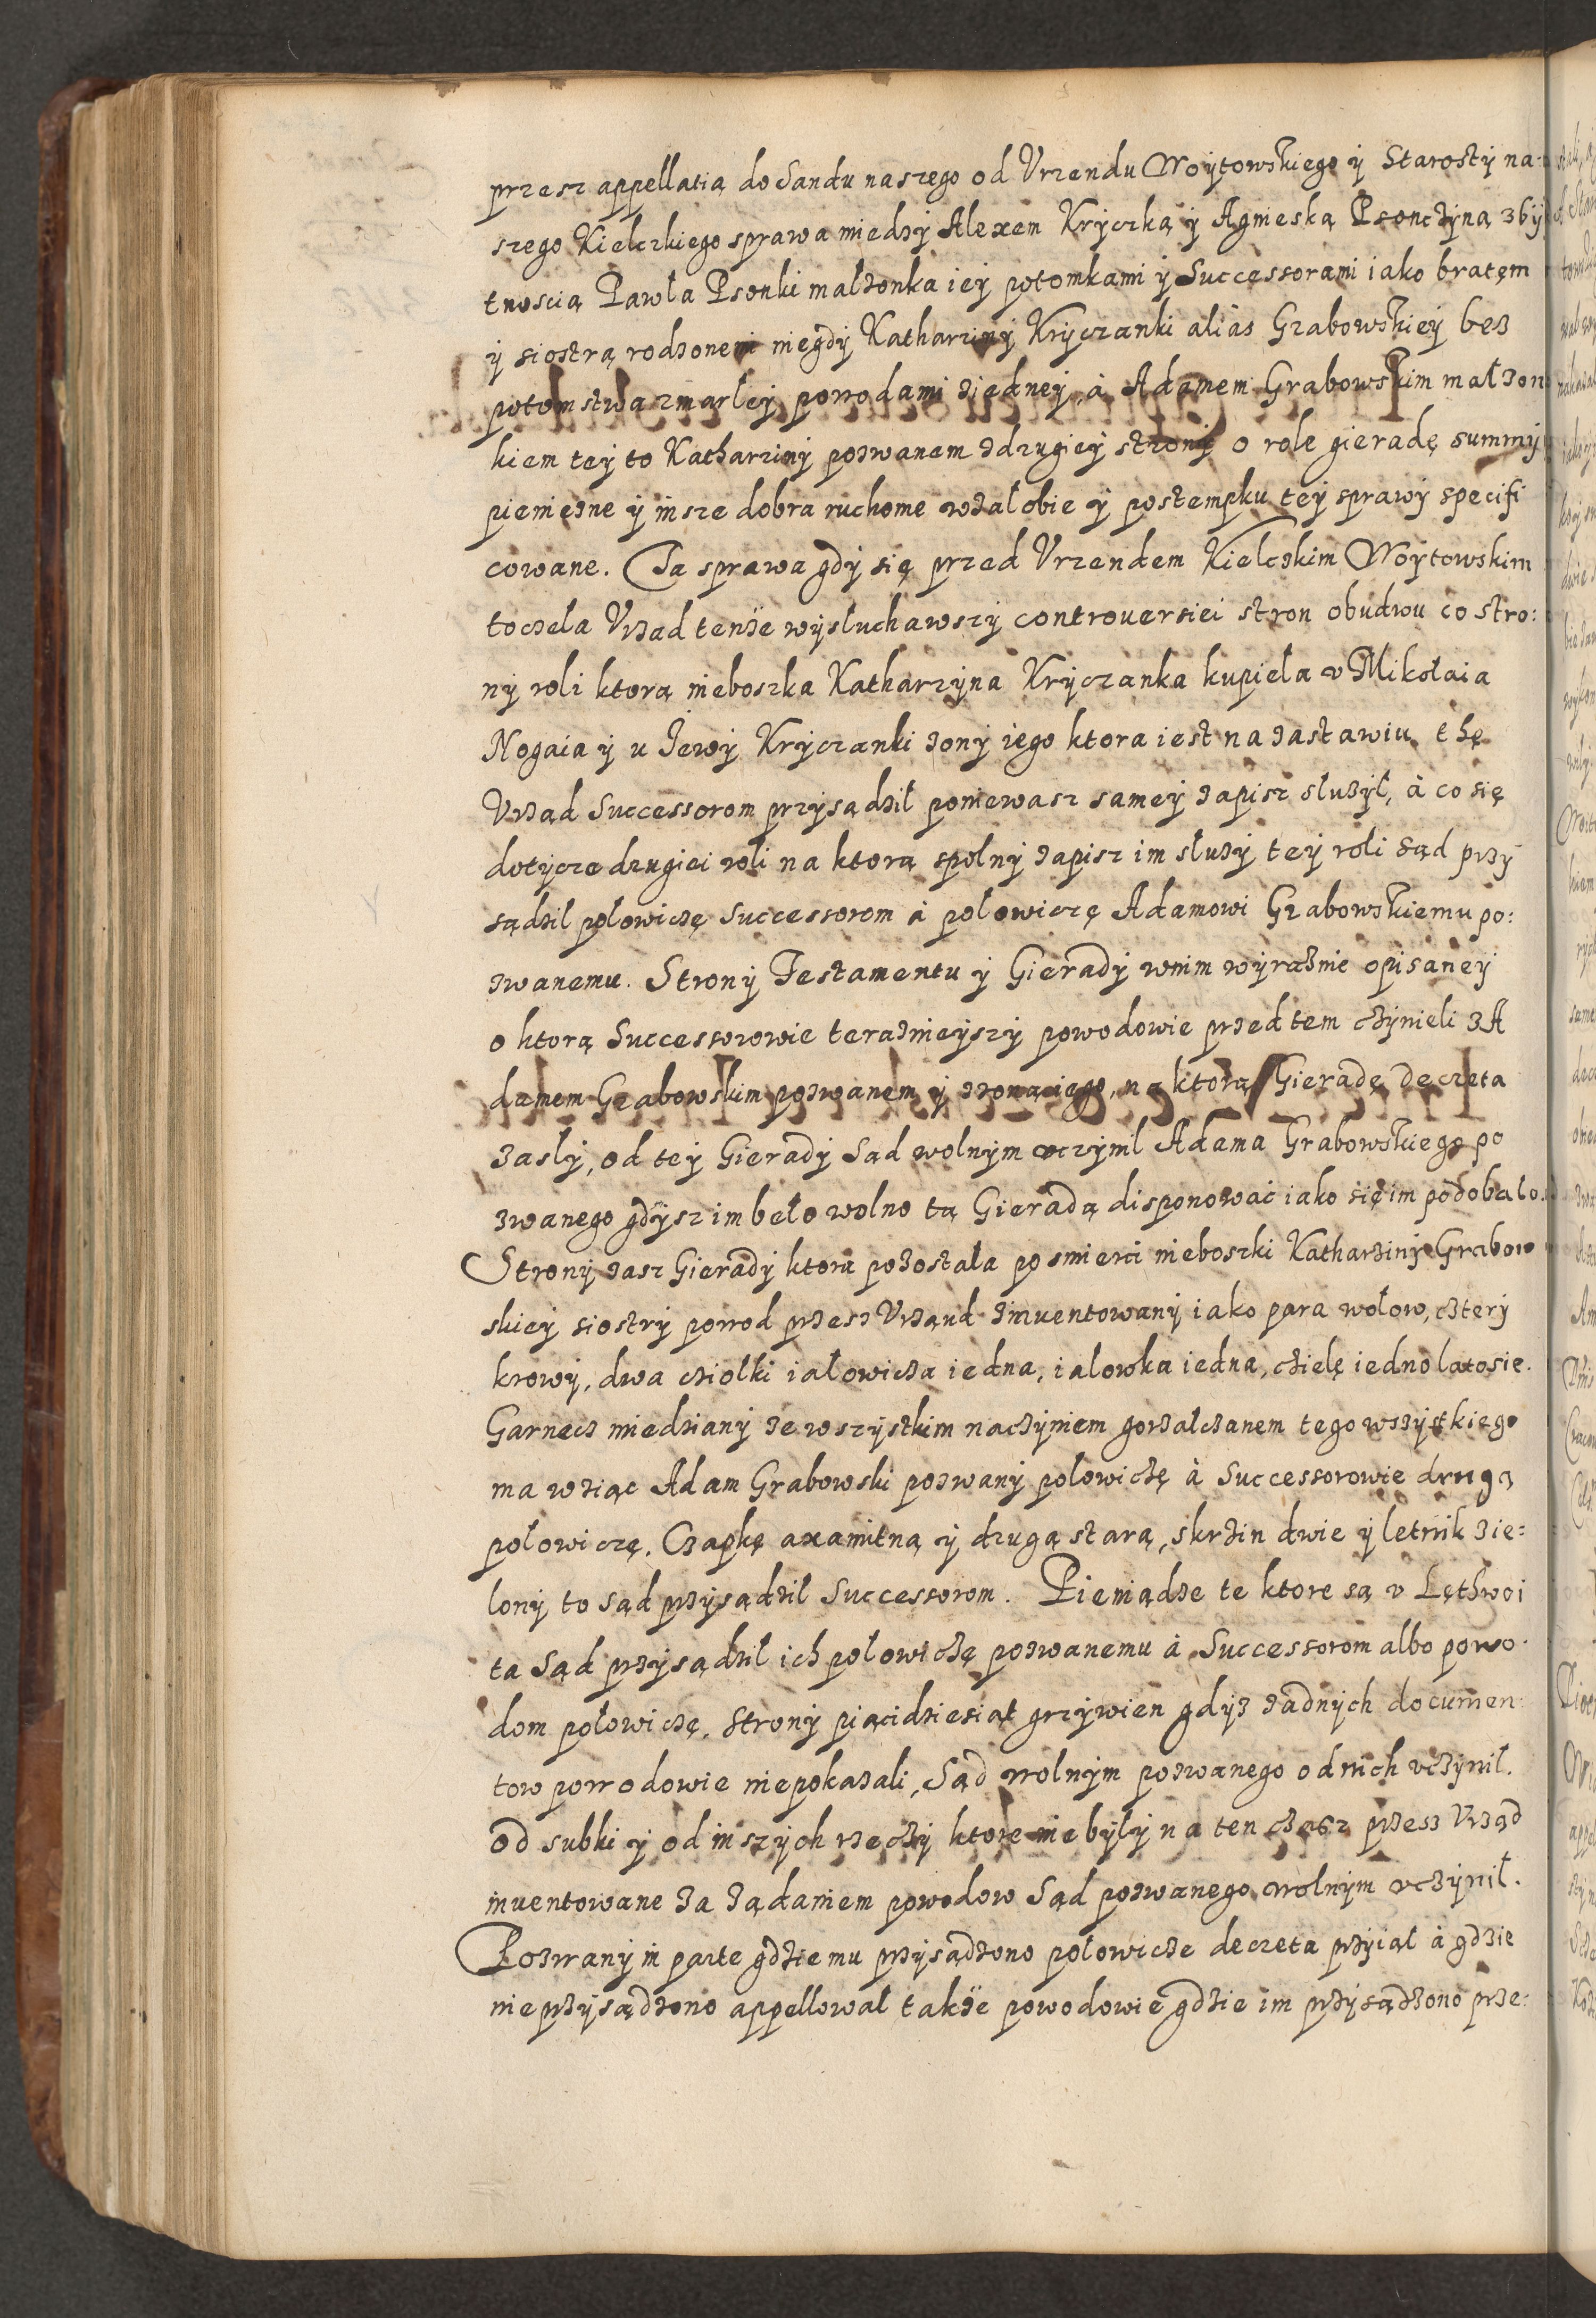 przesz appellatią do Sandu naszego od Vrzendu Woytowskiego ÿ Starostÿ na-
szego Kielczkiego sprawa miedzÿ Alexem Krÿczką ÿ Agnieską Psonczÿną zbÿ
tnoscią Pawła Psonki małzonka ieÿ potomkami ÿ Successorami iako bratęm
ÿ siostrą rodzonemi niegdÿ Katharzinÿ Krÿczanki aliàs Grabowskieÿ bez
potomstwa zmarłeÿ powodami ziedneÿ, à Adamem Grabowskim małzon
kiem teÿ to Katharzinÿ pozwanem zdrugieÿ stronÿ o role gieradę summÿ
pieniężne ÿ insze dobra ruchome wzałobie ÿ postempku teÿ sprawÿ specifi
cowane. Ta sprawa gdÿ się przed Vrzendem Kielczkim Woÿtowskim
toczeła Vrzad tenże wÿsłuchawszÿ controuersiei stron obudwu co stro:
nÿ roli ktorą nieboszka Katharzÿna Krÿczanka kupieła v Mikołaia
Nogaia ÿ u Jewÿ Krÿczanki zonÿ iego ktora iest na zastawiu thę
Vrząd Successorom przÿsądził poniewasz sameÿ zapisz słuzÿł, à co się
dotÿcze drugiei roli na ktorą spolnÿ zapisz im słuzÿ teÿ roli Sąd przÿ
sądził połowiczę Successorom à połowiczę Adamowi Grabowskiemu po:
zwanemu. Stronÿ Testamentu ÿ Gieradÿ wnim wÿraznie opisaneÿ
o ktorą Successorowie teraznieÿszÿ powodowie przedtem czÿnieli zA
damem Grabowskim pozwanem ÿ zzoną iego, na ktorą Gieradę decreta
zaszłÿ, od teÿ Gieradÿ Sąd wolnÿm vczÿnił Adama Grabowskiego po
zwanego gdÿsz im beło wolno tą Gieradą disponowac iako się im podobało.
Stronÿ zasz Gieradÿ ktora pozostała po smierci nieboszki Katharzinÿ Grabow
skieÿ siostrÿ powod przesz Vrząnd zinuentowanÿ iako para wołow, czterÿ
krowÿ, dwa cziołki iałowicza iedna, iałowka iedna, czielę iedno latosie.
Garnecz miedzianÿ ze wszÿstkim naczÿniem gorzałczanem tego wszÿstkięgo
ma wziąc Adam Grabowski pozwanÿ połowiczę à Successorowie drugą
połowiczę. Czapkę axamitną ÿ drugą starą, skrzin dwie ÿ letnik zie=
lonÿ to Sąd przÿsądził Successorom. Pieniądze te ktore są v Lęthwoi
ta Sąd przÿsądził ich połowiczę pozwanemu à Successorom albo powo-
dom połowiczę. Stronÿ piącidziesiat grzÿwien gdÿz zadnÿch documen-
tow powodowie niepokazali, Sąd wolnÿm pozwanego od nich vczÿnił.
Od subki ÿ od inszÿch rzeczÿ ktore nie bÿłÿ na ten czasz przesz Vrząd
inuentowane za ządaniem powodow Sąd pozwanego wolnÿm vczÿnił.
Pozwanÿ in parte gdzie mu przÿsądzono połowicze decreta przÿiął à gdzie
nieprzÿsądzono appellował takze powodowie gdzie im przÿsądzono prze: